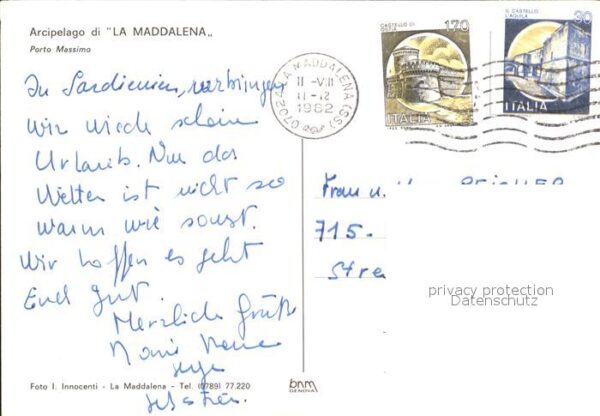 Arcipelago di "LA MADDALENA„
Porto Massimo
In Sardinien, verbringen
wir wieder schön
Urlaub. Nur das
Wetter ist nicht so
warm wie sonst.
Wir hoffen es geht
Euch gut.
Herzliche Grüße
CASTELLO DI
OSTIA
170
ITALIA
IL CASTELLO
L'AQUILA
30
ITALIA
07024 LA MADDALENA (SS)
11-VIII
11-12
1982
Frau u.
715.
Stre
privacy protection
Datenschutz
Foto I. Innocenti - La Maddalena - Tel. (0789) 77.220
bnm
GENOVA